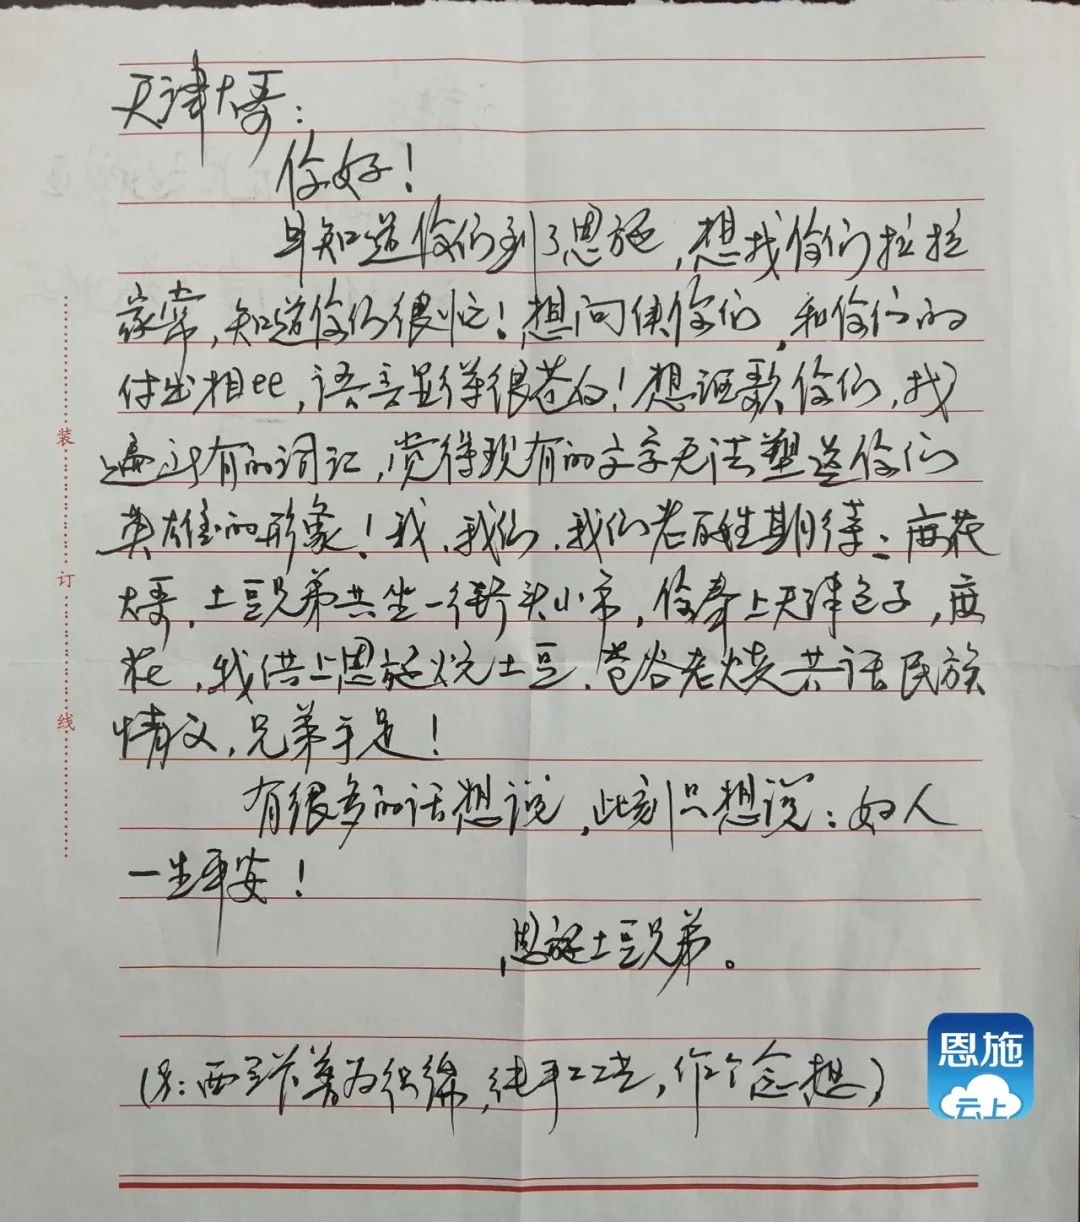 天津大哥：
你好！
早知道你们到了恩施，想找你们拉拉
家常，知道你们很忙！想问候你们，和你们的
付出相比，语言显得很苍白！想讴歌你们，找
遍所有的词汇，觉得现有的文字无法塑造你们
英雄的形象！我、我们、我们老百姓期待：麻花
大哥、土豆兄弟共坐一街头小市，你奉上天津包子，麻
花，我供上恩施炕土豆、苞谷老烧共话民族
情义，兄弟手足！
有很多的话想说，此刻只想说：好人
一生平安！
恩施土豆兄弟。
(另：西兰卡普为织锦，纯手工艺，作个念想)
装
订
线
恩施
云上